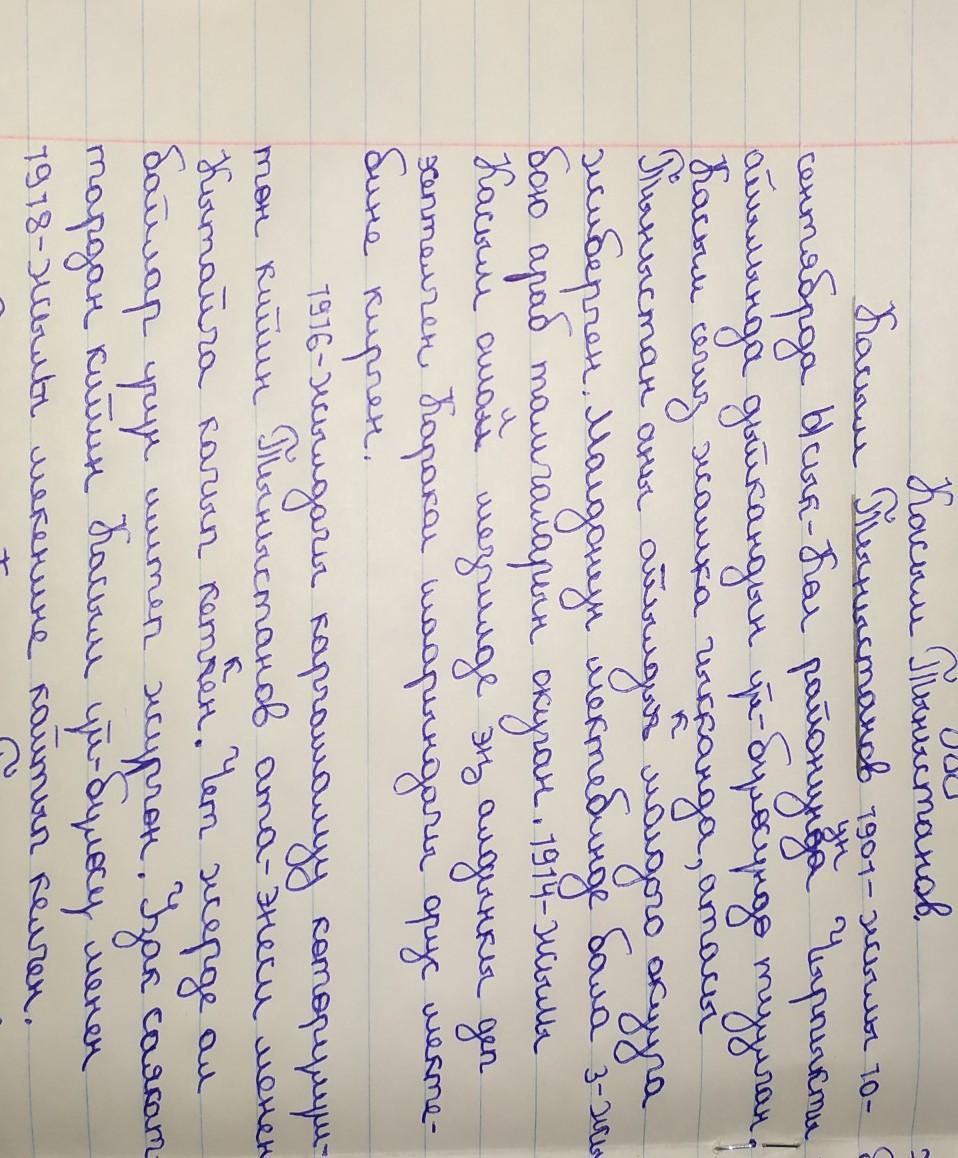 Касым Тыныстанов.
Касым Тыныстанов 1901-жылы 10-
сентябрда Ысык-Көл районунун Чырпыкты
айлында дыйкандын үй-бүлөсүндө туулган.
Касым сегиз жашка чыкканда, атасы
Тыныстан аны айылдык молдого окууга
жиберген. Молдонун мектебинде бала 3-жыл
бою араб тамгаларын окуган. 1914-жылы
Касым ошол мезгилде эң алдыңкы деп
эептелген Каракол шаарындагы орус мекте-
бине кирген.
1916-жылдагы каргашалуу көтөрүлүш-
төн кийин Тыныстанов ата-энеси менен
Кытайга качып кеткен. Чет жерде ал
байлар үчүн иштеп жүргөн. Узак саякат-
тардан кийин Касым үй-бүлөсү менен
1918-жылы мекенине кайтып келген.